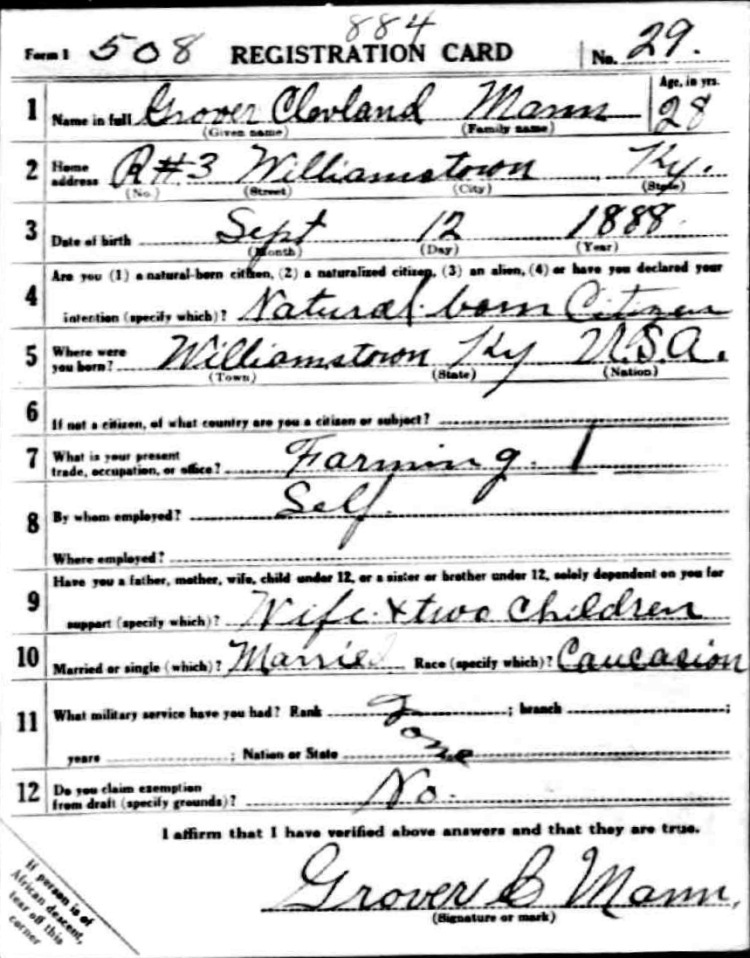 884
Form 1 508 REGISTRATION CARD No. 29.
1 Name in full Grover Clevland Mann Age, in yrs. 28
(Given name) (Family name)
2 Home address R#3 Williamstown Ky.
(No.) (Street) (City) (State)
3 Date of birth Sept 12 1888.
(Month) (Day) (Year)
4 Are you (1) a natural-born citizen, (2) a naturalized citizen, (3) an alien, (4) or have you declared your
intention (specify which)? Natural born Citizen
5 Where were you born? Williamstown Ky U.S.A.
(Town) (State) (Nation)
6 If not a citizen, of what country are you a citizen or subject?
7 What is your present trade, occupation, or office? Farming.
8 By whom employed? Self
Where employed?
9 Have you a father, mother, wife, child under 12, or a sister or brother under 12, solely dependent on you for
support (specify which)? Wife & two children
10 Married or single (which)? Married Race (specify which)? Caucasion
11 What military service have you had? Rank ; branch ;
years ; Nation or State
12 Do you claim exemption from draft (specify grounds)? No.
I affirm that I have verified above answers and that they are true.
Grover C Mann,
(Signature or mark)
If person is of
African descent,
tear off this
corner